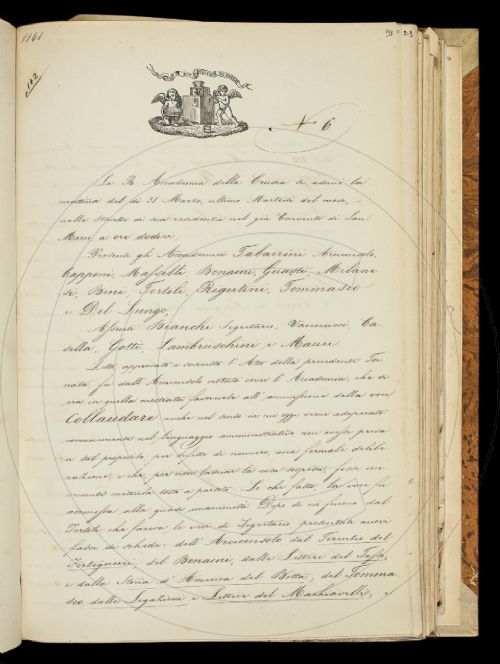 1161.
c. 142
198 a 203
N 6
La R. Accademia della Crusca si adunò la
mattina del dì 31 Marzo, ultimo Martedì del mese,
nelle stanze di sua residenza nel già Convento di San
Marco a ore dodici.
Presenti gli Accademici Tabarrini Arciconsolo,
Capponi, Maffei, Bonaini, Guasti, Milane
si, Bini, Tortoli, Rigutini, Tommaseo
e Del Lungo.
Assenti Bianchi Segretario, Vannucci, Ca
sella, Gotti, Lambruschini e Mauri.
Letto, approvato e corretto l'Atto della precedente Tor
nata, fu dall'Arciconsolo notato come l'Accademia, che si
era in quella mostrata favorevole all'ammissione della voce
Collaudare anche nel senso in cui oggi viene adoperato
comunemente nel linguaggio amministrativo non avesse presa
a tal proposito, per difetto di numero, una formale delibe
razione; e che, per non lasciar la cosa sospesa, fosse con
veniente metterla tosto a partito. Lo che fatto, la voce fu
ammessa alla quasi unanimità. Dopo di ciò furono dal
Tortoli che faceva le veci di Segretario presentati nuovi
spogli di schede: dell'Arciconsolo dal Terenzio del
Fortiguerri, del Bonaini, dalle Lettere del Tasso,
e dalla Storia d'America del Botta, del Tomma
seo dalle Legazioni e Lettere del Machiavelli, e